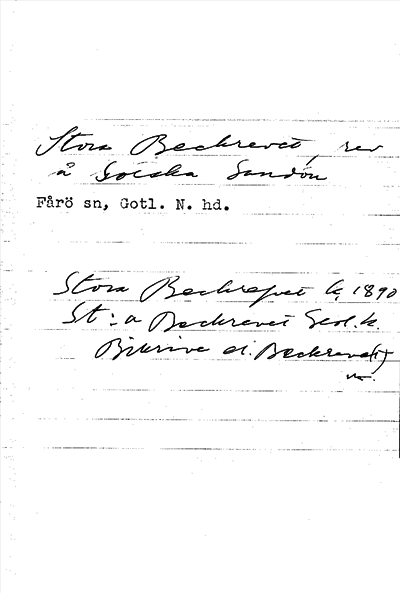 Stora Beckrevet, rev
å Gotska Sandön
Fårö sn, Gotl. N. hd.
Stora Beckrefvet k, 1890
St:a Beckrevet Geol.k.
Beckrevet)